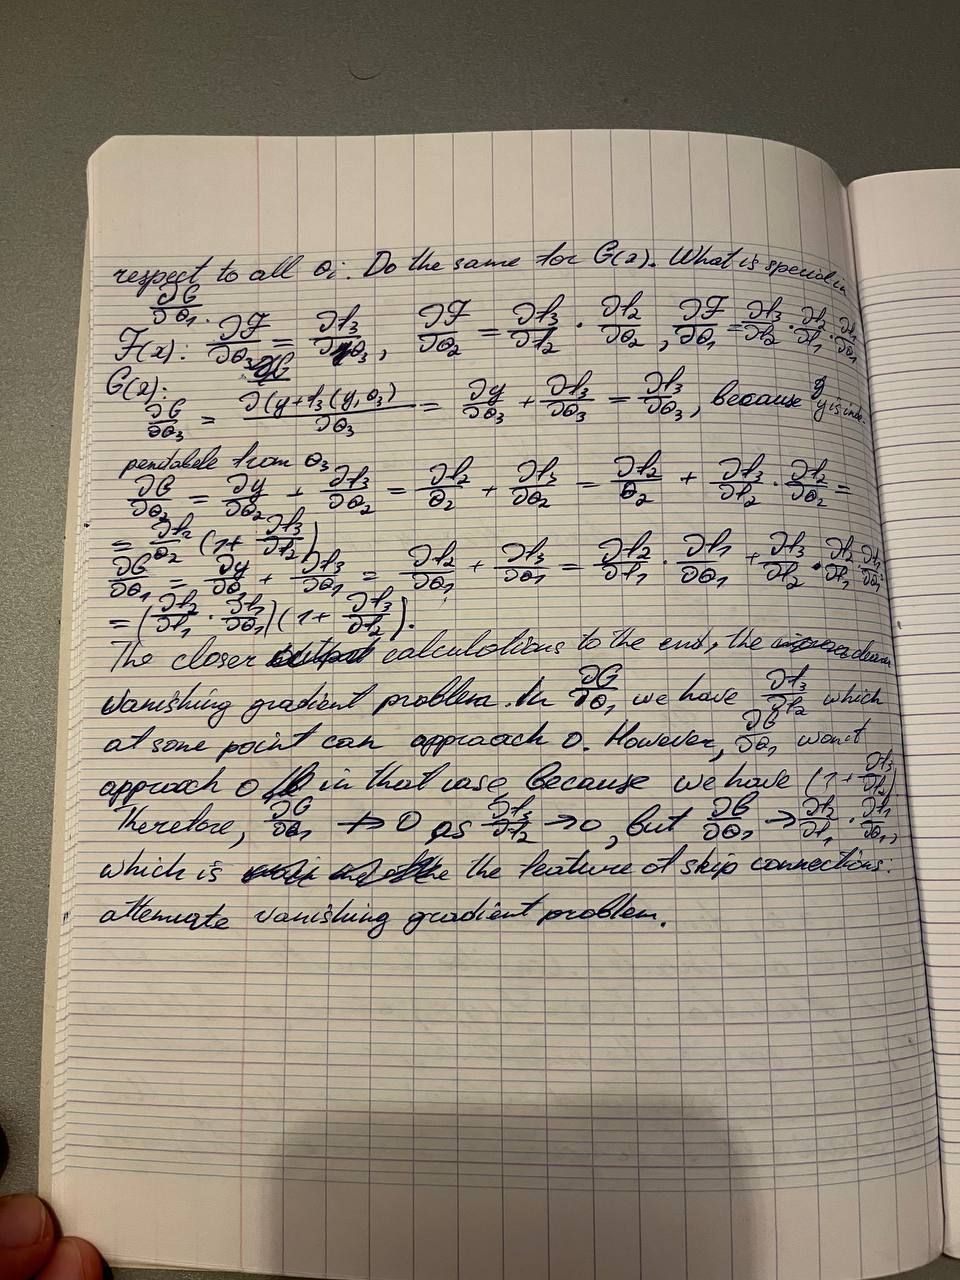 respect to all θi. Do the same for G(x). What is special in
∂G/∂θ1.
F(x): ∂F/∂θ3 = ∂f3/∂θ3, ∂F/∂θ2 = ∂f3/∂f2 · ∂f2/∂θ2, ∂F/∂θ1 = ∂f3/∂f2 · ∂f2/∂f1 · ∂f1/∂θ1
G(x):
∂G/∂θ3 = ∂(y+f3(y,θ3)/∂θ3 = ∂y/∂θ3 + ∂f3/∂θ3 = ∂f3/∂θ3, because y is inde-
pendabele from θ3
∂G/∂θ2 = ∂y/∂θ2 + ∂f3/∂θ2 = ∂f2/θ2 + ∂f3/∂θ2 = ∂f2/θ2 + ∂f3/∂f2 · ∂f2/∂θ2 =
= ∂f2/θ2 (1+ ∂f3/∂f2)
∂G/∂θ1 = ∂y/∂θ1 + ∂f3/∂θ1 = ∂f2/∂θ1 + ∂f3/∂θ1 = ∂f2/∂f1 · ∂f1/∂θ1 + ∂f3/∂f2 · ∂f2/∂f1 · ∂f1/∂θ1 =
= (∂f2/∂f1 · ∂f1/∂θ1)(1+ ∂f3/∂f2).
The closer calculations to the end, the
vanishing gradient problem. In ∂G/∂θ1 we have ∂f3/∂f2 which
at some point can approach 0. However, ∂G/∂θ1 won't
approach 0 in that case, because we have (1+ ∂f3/∂f2)
Therefore, ∂G/∂θ1 ↛ 0 as ∂f3/∂f2 → 0, but ∂G/∂θ1 → ∂f2/∂f1 · ∂f1/∂θ1,
which is the feature of skip connections:
attenuate vanishing gradient problem.